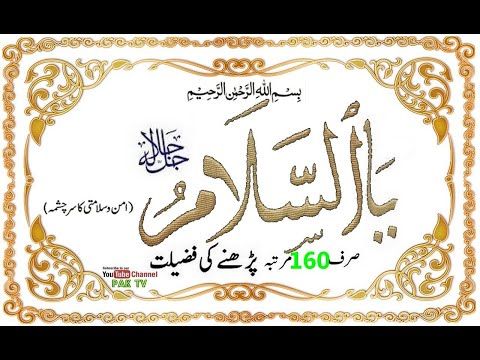 بِسْمِ اللهِ الرَّحْمٰنِ الرَّحِيْمِ
يَا اَلسَّلَامُ
جل جلالہ
(امن و سلامتی کا سرچشمہ)
صرف 160 مرتبہ پڑھنے کی فضیلت
YouTube Channel
PAK TV